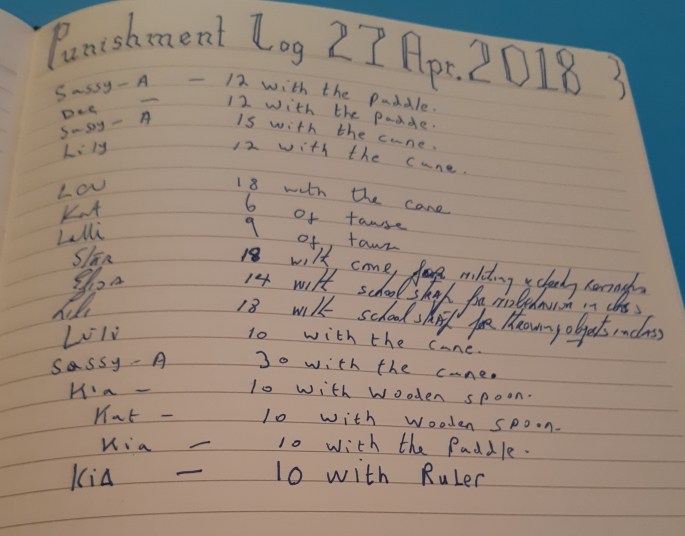 Punishment Log 27 Apr. 2018
Sassy-A - 12 with the paddle.
Dee - 12 with the padde.
Sassy-A 15 with the cane.
Lily 12 with the cane.
Lou 18 with the cane
Kat 6 of tawse
Lelli 9 of taws
Star 18 with cane, for
Eliza 14 with school strap for misbehaviour in class
Lili 18 with school strap for throwing objects in class
Luli 10 with the cane.
Sassy-A 30 with the cane.
Kia - 10 with wooden spoon.
Kat - 10 with wooden spoon.
Kia - 10 with the Paddle.
Kia - 10 with Ruler